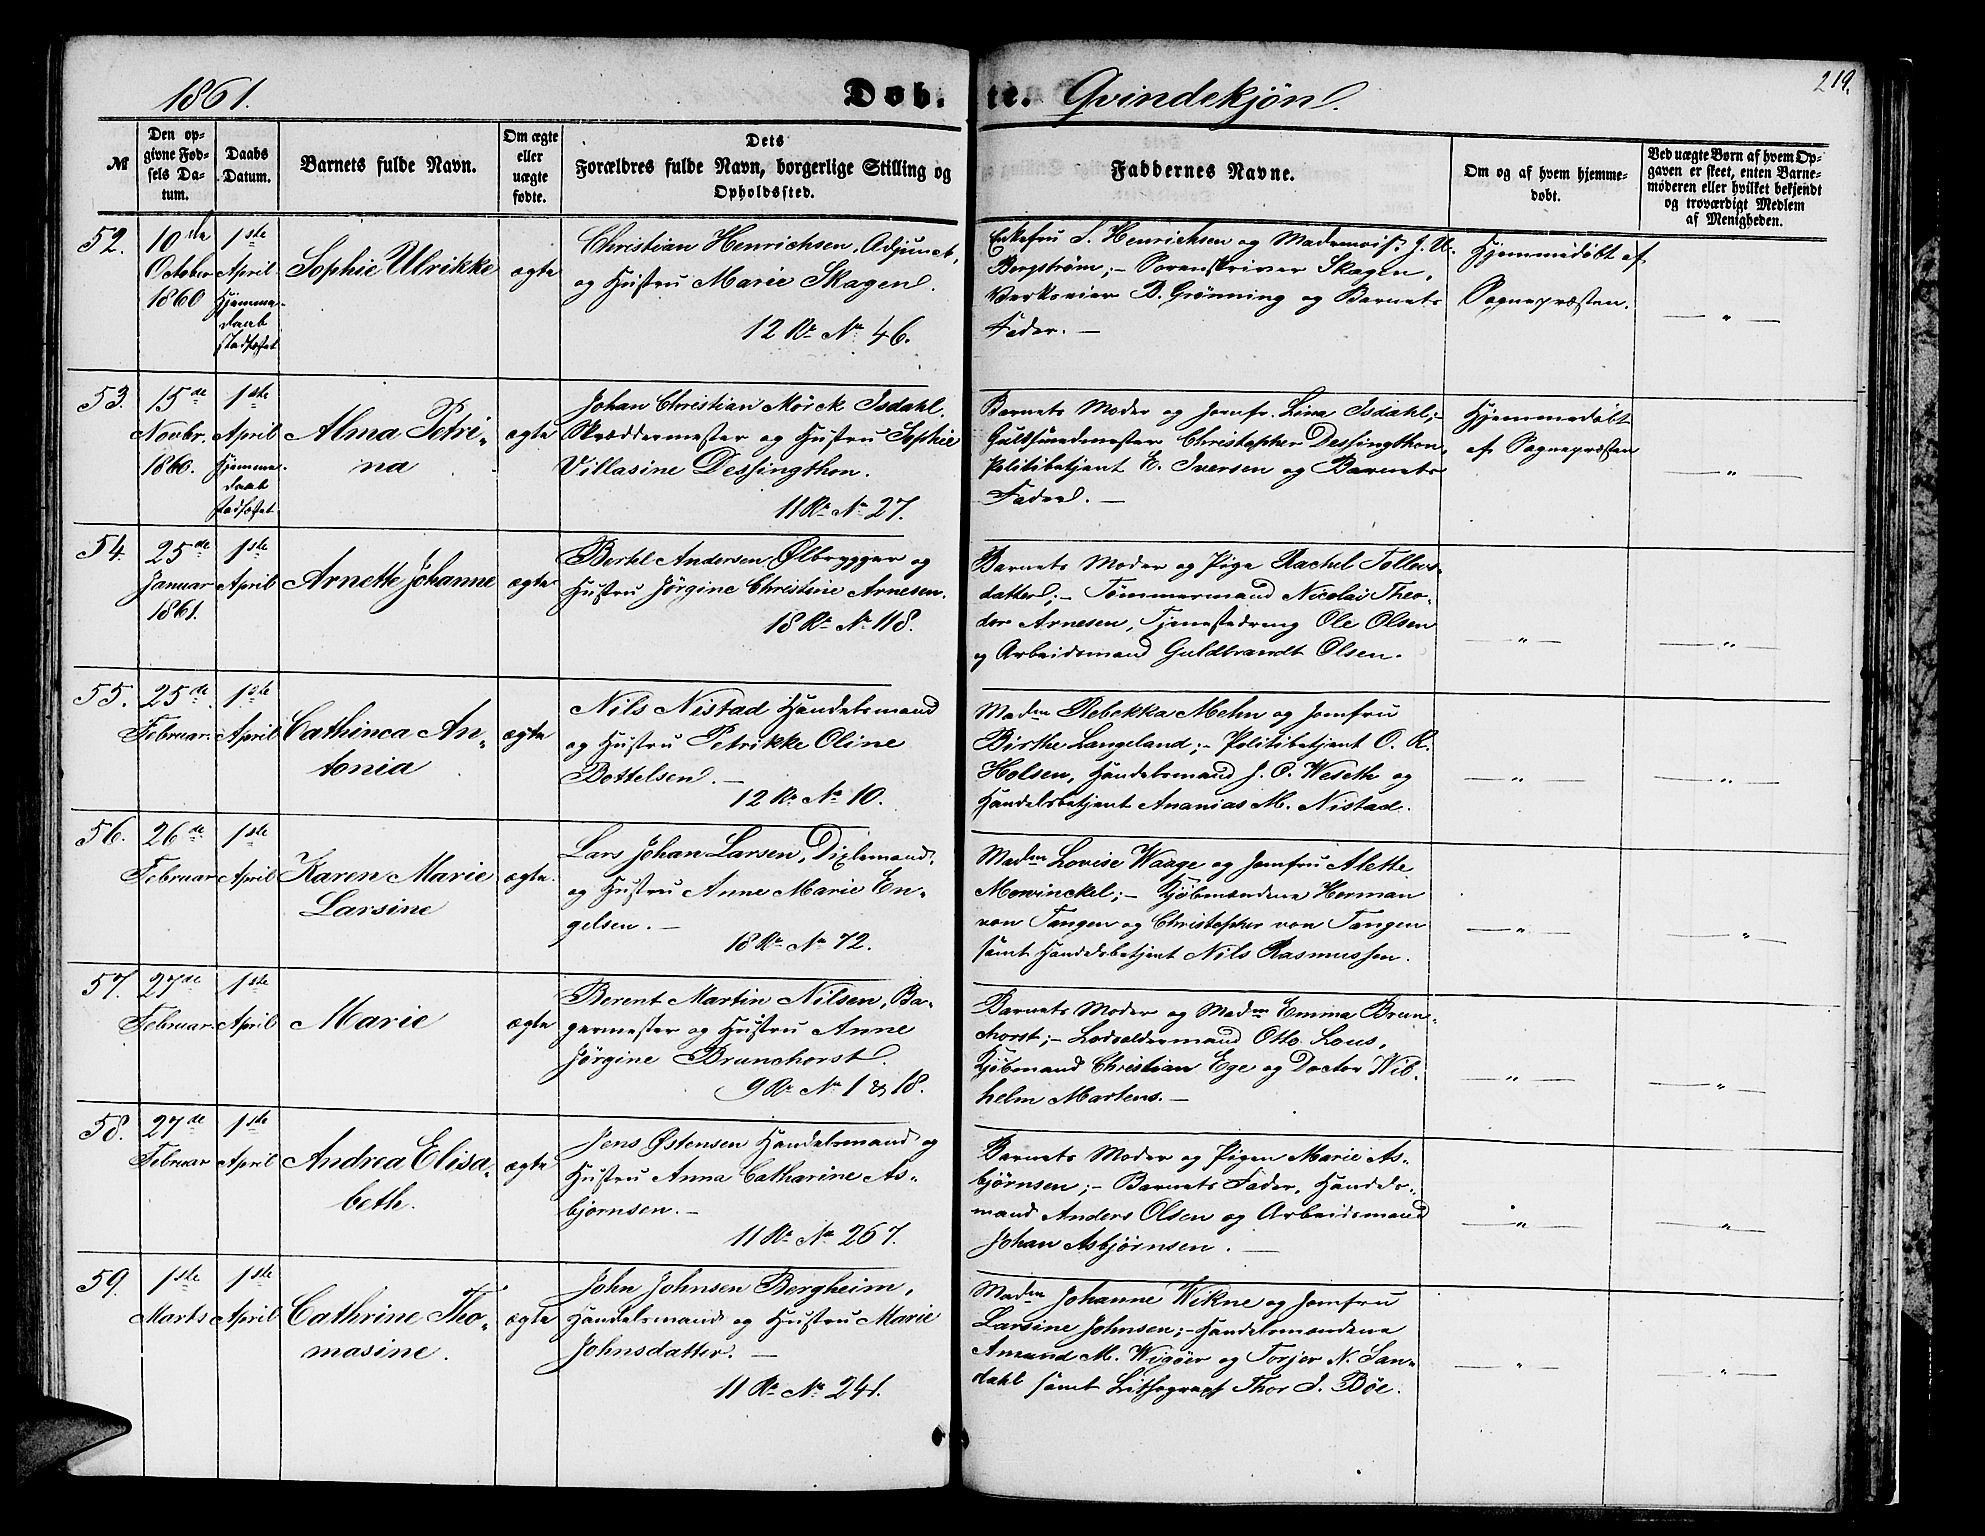 1861.
Døb-
te. Qvindekjøn.
219.
№
Den opgivne Fødsels Datum.
Daabs Datum.
Barnets fulde Navn.
Om ægte eller uægte fødte.
Dets
Forældres fulde Navn, borgerlige Stilling og
Opholdssted.
Faddernes Navne.
Om og af hvem hjemmedøbt.
Ved uægte Børn af hvem Op-
gaven er skeet, enten Barne-
moderen eller hvilket bekjendt
og troværdigt Medlem
af Menigheden.
52.
10de
October
1860
1ste
April
Hjemme-
daab
stadfæstet
Sophie Ulrikke
ægte
Christian Henrichsen, Adjunct,
og Hustru Marie Skagen.
12 R. No 46.
Enkefru S. Henrichsen og Mademois. J. U.
Bergström; - Sorenskriver Skagen,
Værkseier B. Grønning og Barnets
Fader. -
Hjemmedøbt af
Sognepræsten.
- " -
53.
15de
Novbr.
1860.
1ste
April
Hjemme-
daab
stadfæstet
Alma Petri-
na
ægte
Johan Christian Mörck Isdahl,
Skræddermester og Hustru Sophie
Villasine Dessingthon.
11 R. No 27.
Barnets Moder og Jomfr. Lina Isdahl; -
Guldsmedmester Christopher Dessingthon,
Politibetjent E. Iversen og Barnets
Fader. -
Hjemmedøbt
af Sognepræsten
- " -
54.
25de
Januar
1861.
1ste
April
Arnette Johanne
ægte
Bertel Andersen Ølbrygger og
Hustru Jörgine Christine Arnesen.
18 R. No 118.
Barnets Moder og Pige Rachel Tollevs-
datter; - Tømmermand Nicolai Theo-
dor Arnesen, Tjenestedreng Ole Olsen
og Arbeidsmand Guldbrandt Olsen.
- " -
- " -
55.
25de
Februar.
1ste
April
Cathinca An-
tonia
ægte
Nils Nistad Handelsmand
og Hustru Petrikke Oline
Bottelsen. -
12 R. No 10.
Madm Rebekka Mehn og Jomfru
Birthe Langeland; - Politibetjent O. R.
Holsen, Handelsmand J. C. Weseth og
Handelsbetjent Ananias M. Nistad.
- " -
- " -
56.
26de
Februar
1ste
April
Karen Marie
Larsine
ægte.
Lars Johan Larsen, Dixlemand,
og Hustru Anne Marie En-
gelsen. -
18 R. No 72.
Madm Lovise Waage og Jomfru Alette
Mowinckel; - Kjøbmændene Herman
von Tangen og Christopher von Tangen
samt Handelsbetjent Nils Rasmussen.
- " -
- " -
57.
27de
Februar.
1ste
April
Marie
ægte
Berent Martin Nilsen, Ba-
germester og Hustru Anne
Jörgine Brunchorst.
9 R. No 1 & 18.
Barnets Moder og Madm Emma Brun-
chorst; - Lodsoldermand Otto Lous,
Kjøbmand Christian Ege og Doctor Wil-
helm Martens. -
- " -
- " -
58.
27de
Februar
1ste
April
Andrea Elisa-
beth.
ægte
Jens Østensen Handelsmand og
Hustru Anna Catharine As-
bjørnsen. -
11 R. No 267.
Barnets Moder og Pigen Marie As-
bjørnsen; - Barnets Fader, Handels-
mand Anders Olsen og Arbeidsmand
Johan Asbjørnsen. -
- " -
- " -
59.
1ste
Marts
1ste
April
Cathrine Tho-
masine.
ægte
John Johnsen Bergheim,
Handelsmand og Hustru Marie
Johnsdatter. -
11 R. No 241.
Madm Johanne Wikne og Jomfru
Larsine Johnsen; - Handelsmændene
Amund M. Wigöer og Torjer N. San-
dahl samt Lithograf Thor J. Böe.
- " -
- " -